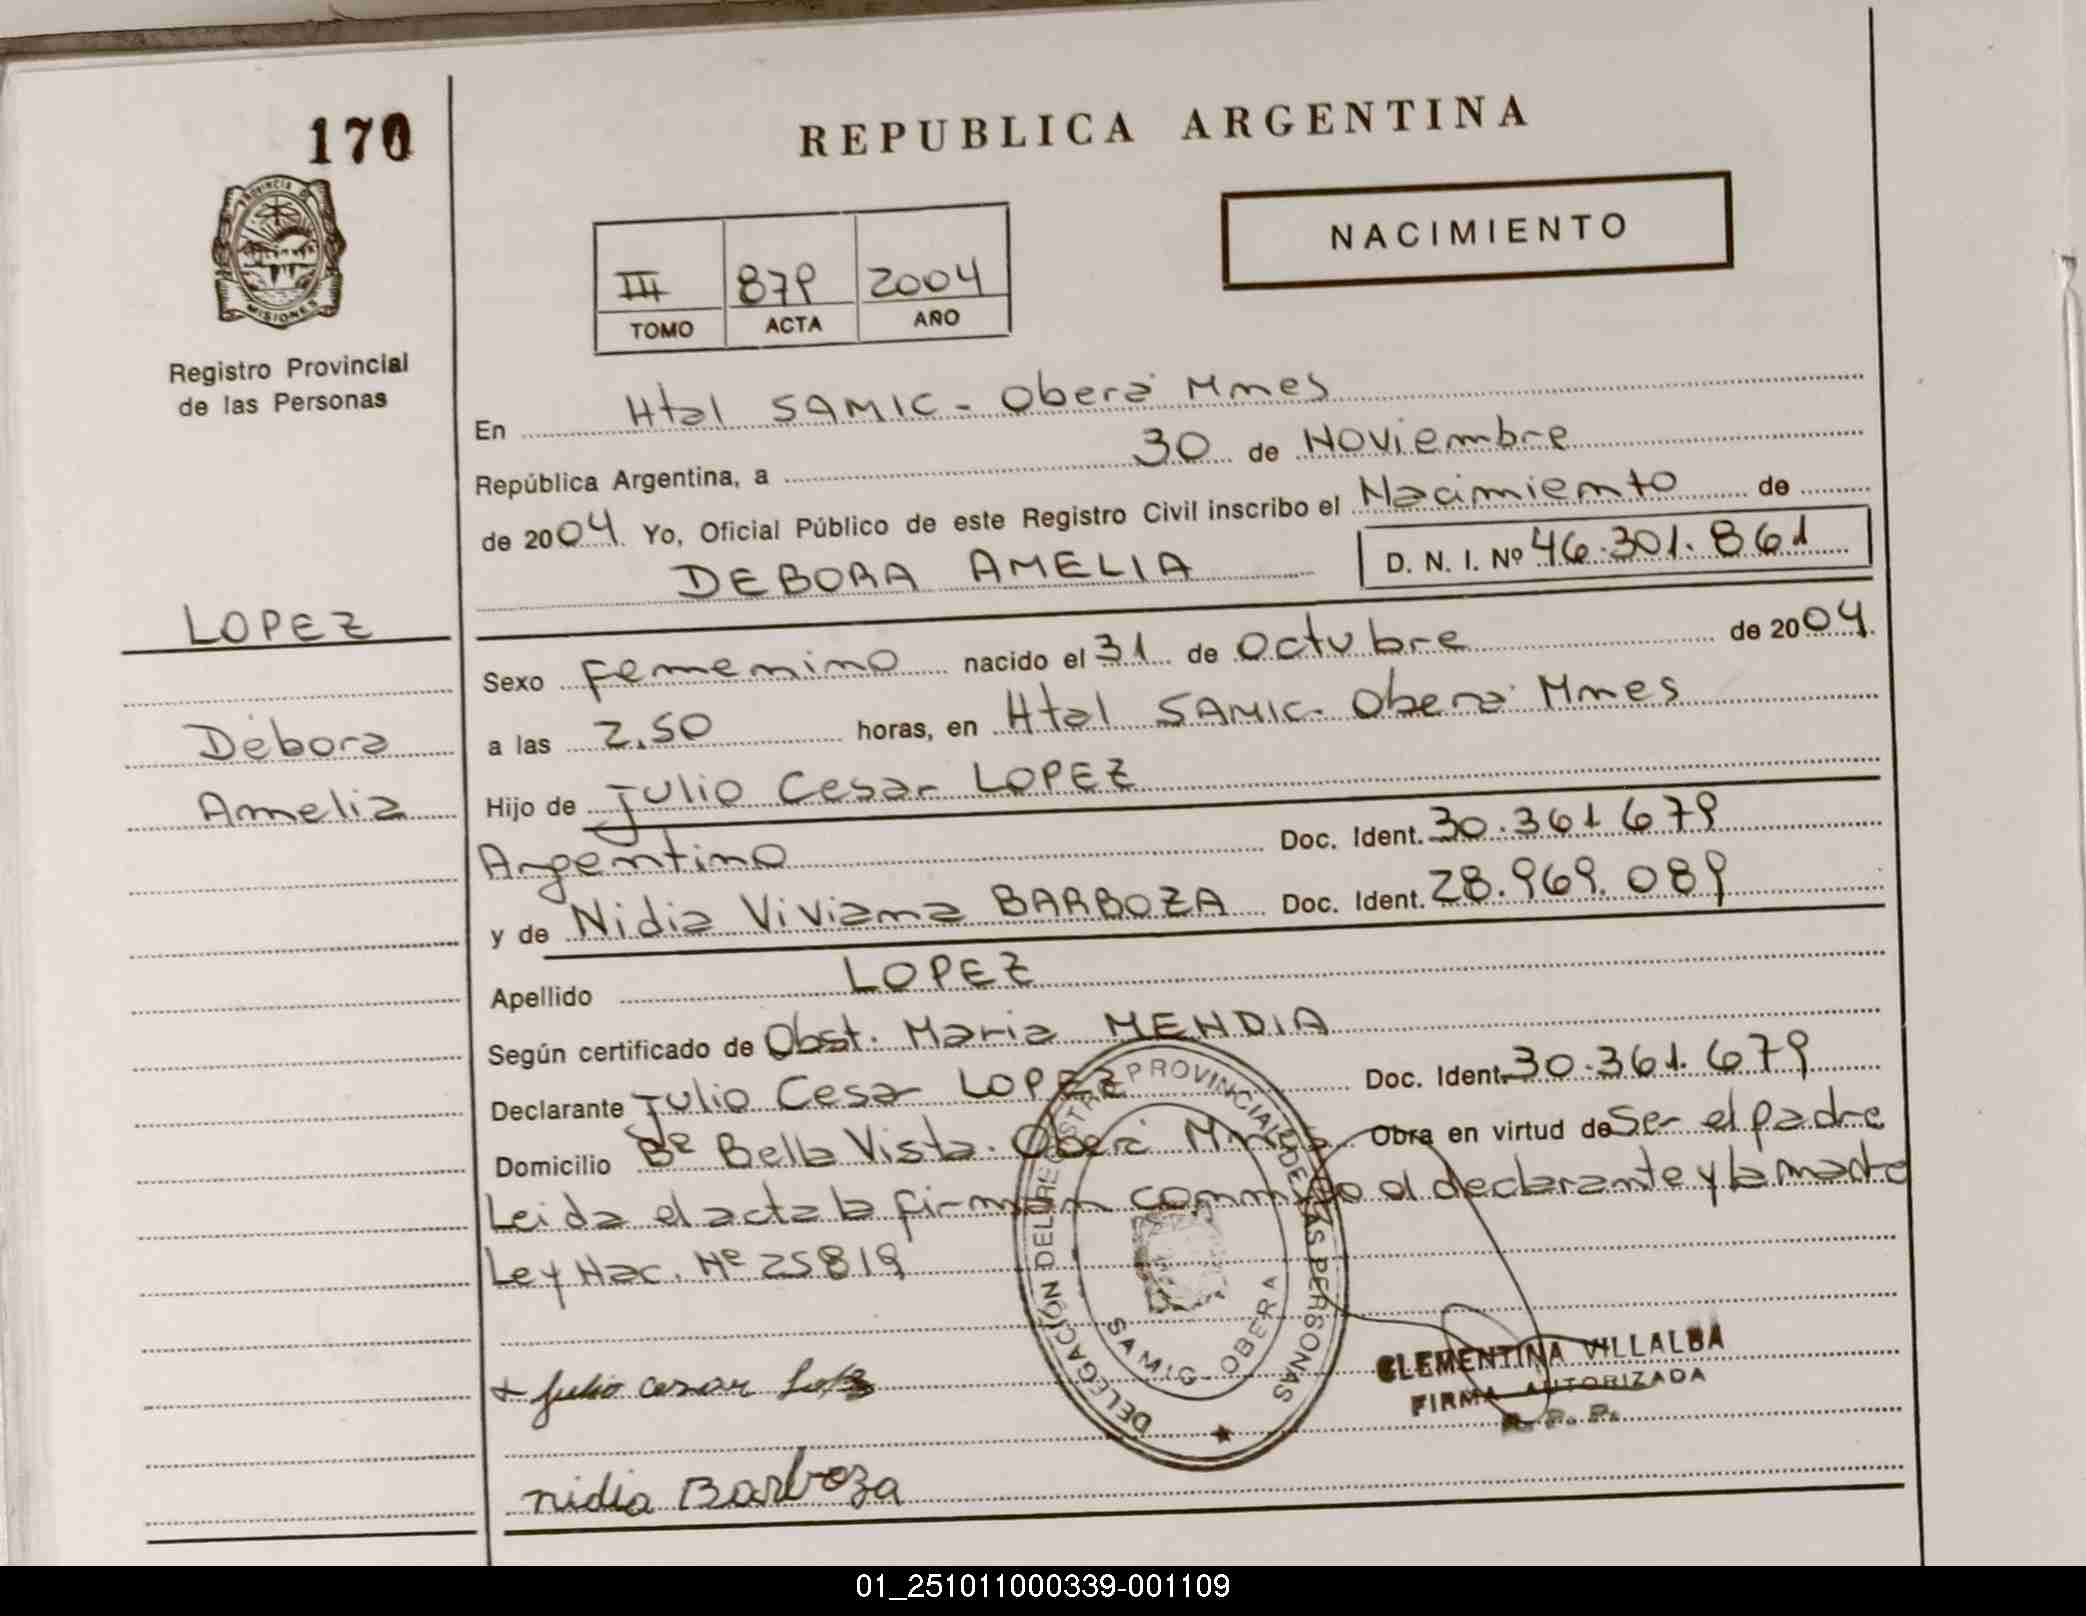 170
REPUBLICA ARGENTINA
PROVINCIA DE
MISIONES
NACIMIENTO
III 879 2004
TOMO ACTA AÑO
Registro Provincial
de las Personas
En Htal SAMIC - Oberá Mnes
República Argentina, a 30 de Noviembre
de 2004. Yo, Oficial Público de este Registro Civil inscribo el Nacimiento de
DEBORA AMELIA D. N. I. Nº 46.301.861
LOPEZ
Sexo Femenino nacido el 31 de Octubre de 2004.
Débora
a las 2.50 horas, en Htal SAMIC. Oberá Mnes
Amelia
Hijo de Julio Cesar LOPEZ
Argentino Doc. Ident. 30.361.679
y de Nidia Viviana BARBOZA Doc. Ident. 28.969.089
Apellido LOPEZ
Según certificado de Obst. Maria MENDIA
Declarante Julio Cesar LOPEZ Doc. Ident. 30.361.679
Domicilio Bº Bella Vista. Oberá Mnes Obra en virtud de Ser el padre
Leida el acta la firman conmigo el declarante y la madre
Ley Nac. Nº 25819
DELEGACIÓN DEL REGISTRO PROVINCIAL DE LAS PERSONAS
SAMIC - OBERA
CLEMENTINA VILLALBA
FIRMA AUTORIZADA
R. P. P.
Julio cesar
nidia Barboza
01_251011000339-001109